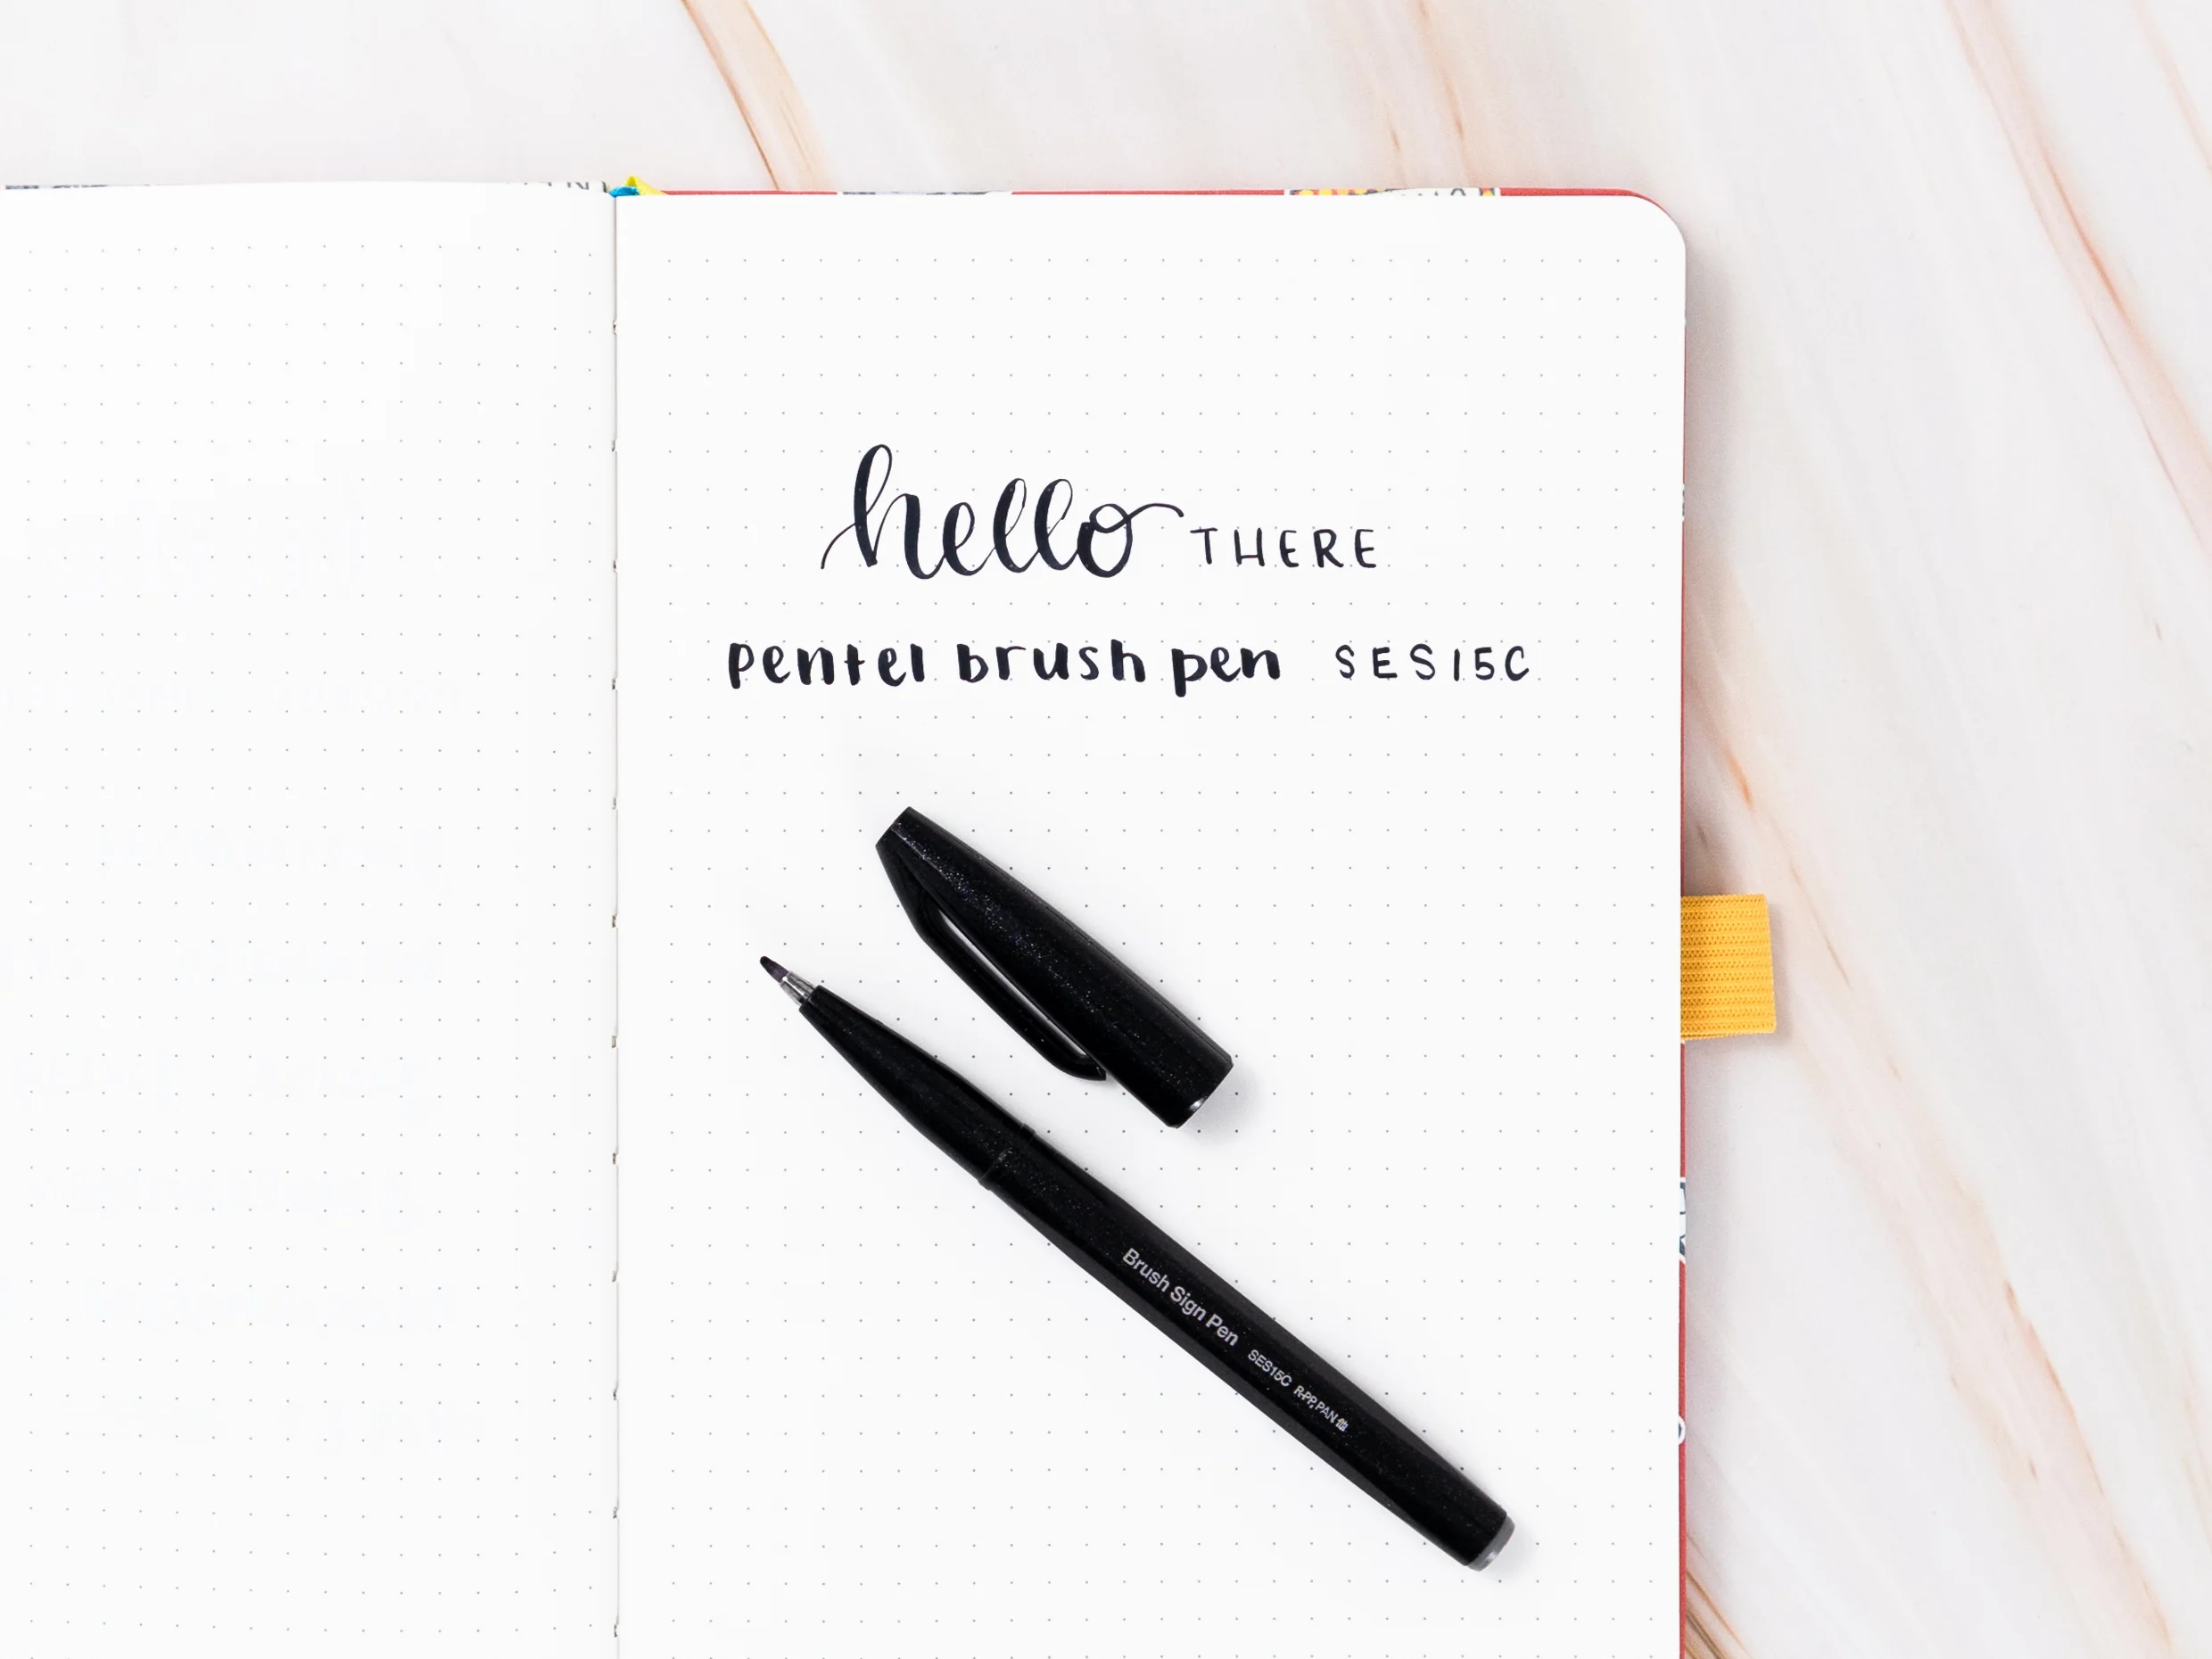 hello THERE
pentel brush pen SES15C
Brush Sign Pen SES15C R-PP, PAN